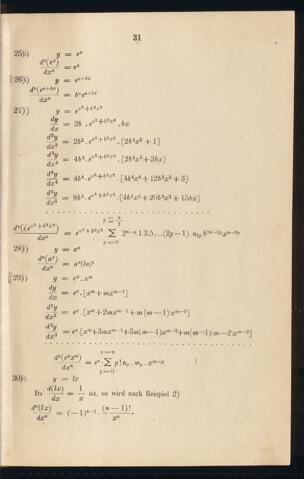 31
25)) y = e^x
d^n(e^x)/dx^n = e^x
((26)) y = e^{a+bx}
d^n(e^{a+bx})/dx^n = b^n e^{a+bx}
27)) y = e^{c^2+b^2x^2}
dy/dx = 2b . e^{c^2+b^2x^2} . bx
d^2y/dx^2 = 2b^2 . e^{c^2+b^2x^2} . [2b^2x^2 + 1]
d^3y/dx^3 = 4b^3 . e^{c^2+b^2x^2} . [2b^3x^3 + 3bx]
d^4y/dx^4 = 4b^4 . e^{c^2+b^2x^2} . [4b^4x^4 + 12b^2x^2 + 3]
d^5y/dx^5 = 8b^5 . e^{c^2+b^2x^2} . [4b^5x^5 + 20b^3x^3 + 15bx]
= e^{c^2+b^2x^2} ∑ 2^{n-p} . 1.3.5...(2p—1) . n_{2p} b^{2n-2p} x^{n-2p}
p=0
28)) y = a^x
d^n(a^x)/dx^n = a^x(la)^n
((29)) y = e^x . x^m
dy/dx = e^x . [x^m + mx^{m-1}]
d^2y/dx^2 = e^x . [x^m + 2mx^{m-1} + m(m—1)x^{m-2}]
d^3y/dx^3 = e^x . [x^m + 3mx^{m-1} + 3m(m—1)x^{m-2} + m(m—1)(m—2)x^{m-3}]
p=n
d^n(e^x x^m)/dx^n = e^x . ∑ p! n_p . m_p . x^{m-p}
p=0
30)) y = lx
Da d(lx)/dx = 1/x ist, so wird nach Beispiel 2)
d^n(lx)/dx^n = (—1)^{n-1} . (n—1)!/x^n .